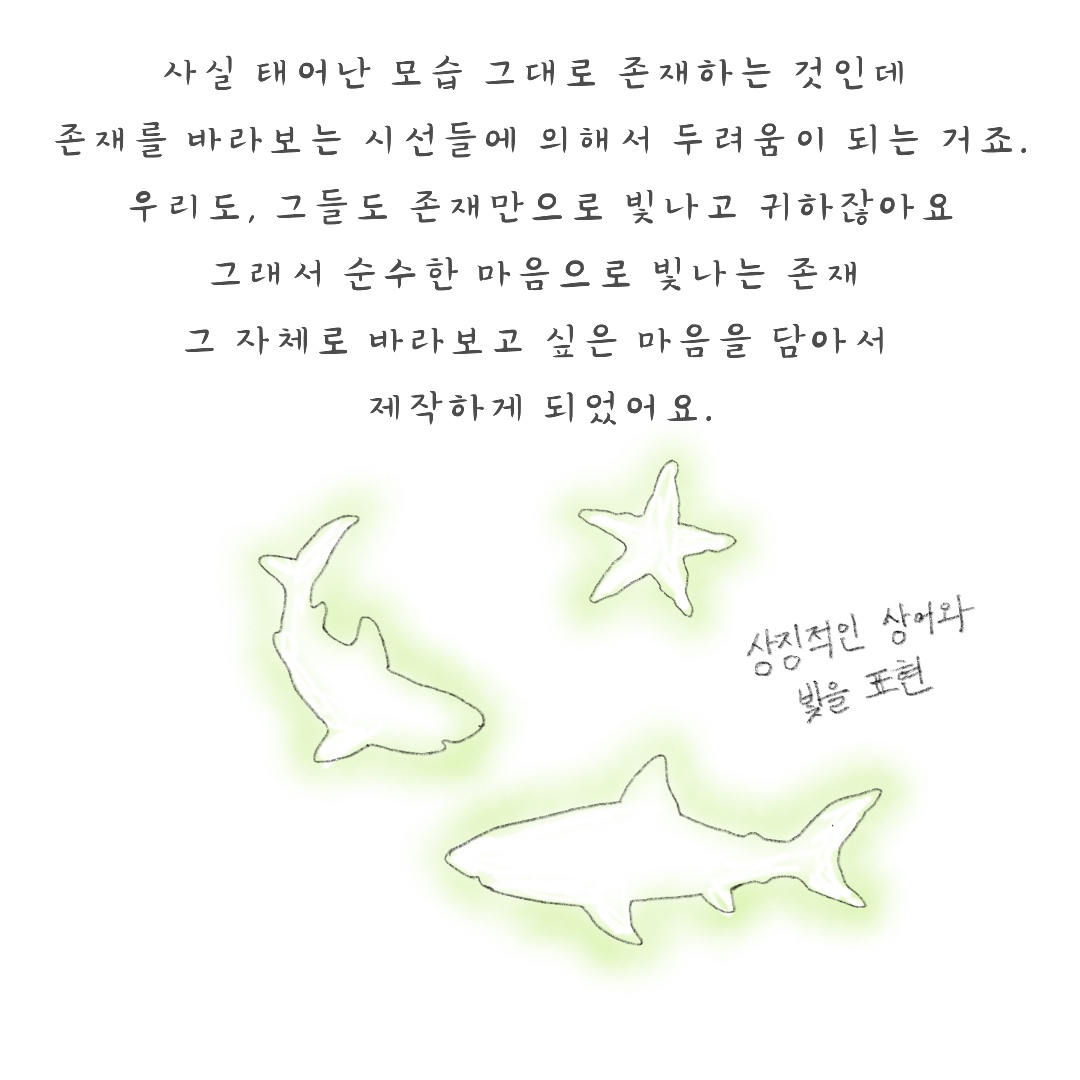 사실 태어난 모습 그대로 존재하는 것인데
존재를 바라보는 시선들에 의해서 두려움이 되는 거죠.
우리도, 그들도 존재만으로 빛나고 귀하잖아요
그래서 순수한 마음으로 빛나는 존재
그 자체로 바라보고 싶은 마음을 담아서
제작하게 되었어요.
상징적인 상어와
빛을 표현